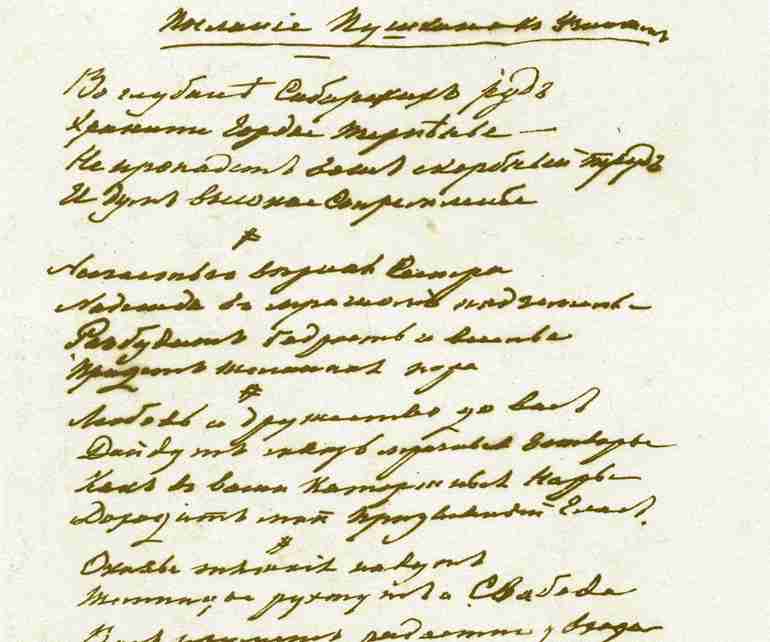 Посланіе Пушкина къ
Во глубинѣ Сибирскихъ рудъ
Храните гордое терпѣнье —
Не пропадетъ вашъ скорбный трудъ
И думъ высокое стремленье
Несчастью вѣрная сестра
Надежда въ мрачномъ подземельѣ
Разбудитъ бодрость и веселье
Придетъ желанная пора
Любовь и дружество до васъ
Дойдутъ сквозь мрачные затворы
Какъ въ ваши каторжныя норы
Доходитъ мой призывный гласъ.
Оковы тяжкія падутъ
Темницы рухнутъ и Свобода
Васъ радостно у входа